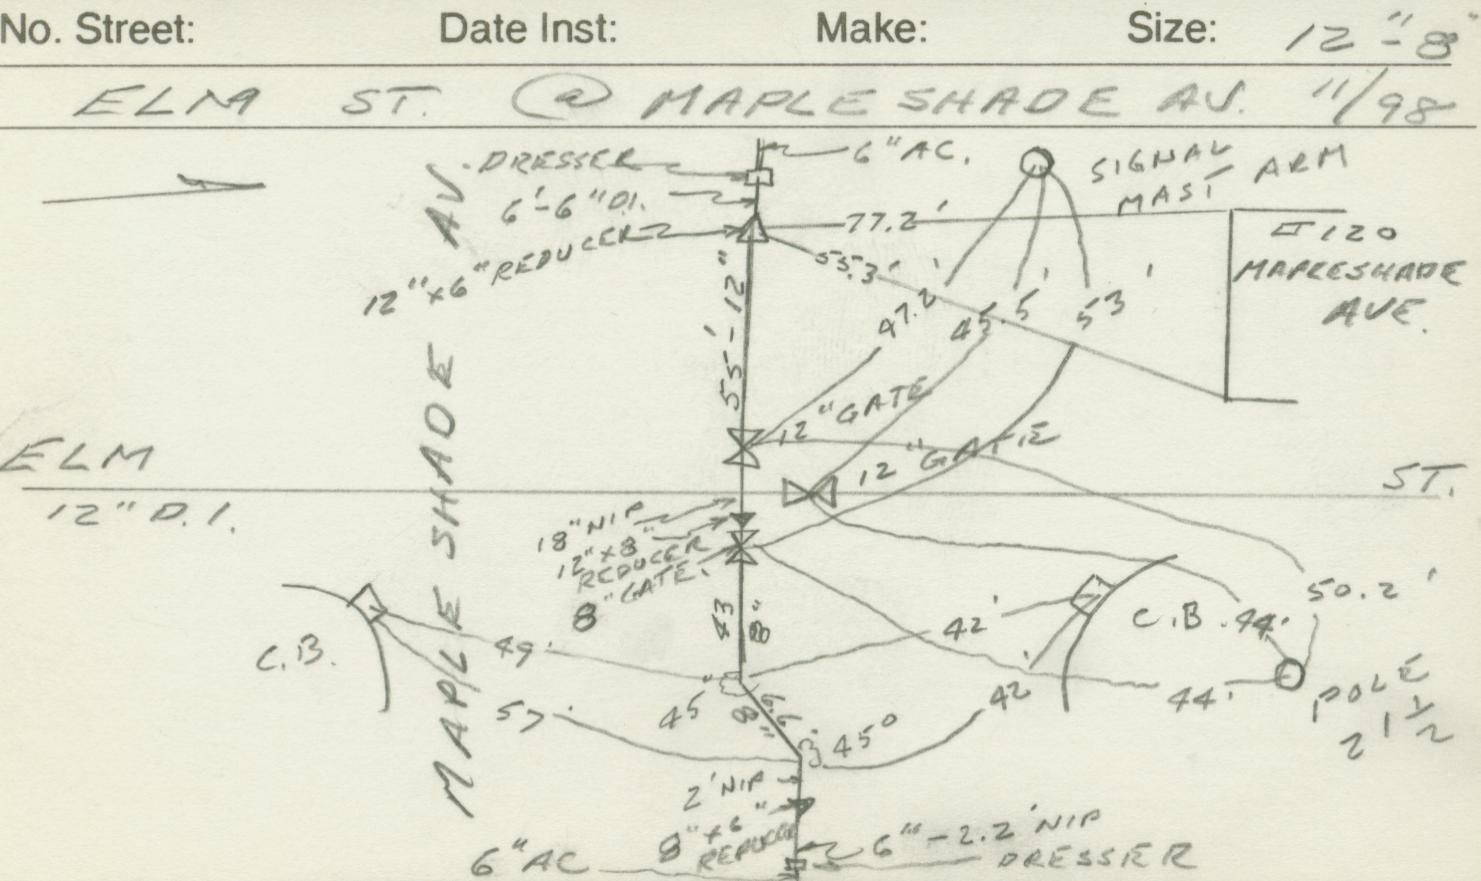 No. Street: Date Inst: Make: Size: 12"-8"
ELM ST. @ MAPLESHADE AV. 11/98
DRESSER
6" AC.
SIGNAL
MAST ARM
6'-6" D.I.
12"x6" REDUCER
77.2'
55.3'
120
MAPLESHADE
AVE.
MAPLE SHADE AV
55'-12"
47.2'
45.5'
53'
12" GATE
12" GATE
ELM
ST.
12" D.I.
18" NIP
12"x8"
REDUCER
8" GATE.
43
8"
C.B.
49'
42'
C.B.
44'
50.2'
57'
45°
6.6
8"
45°
42'
44'
POLE
2 1/2
2' NIP
8"x6"
REDUCER
6"-2.2' NIP
6" AC
DRESSER